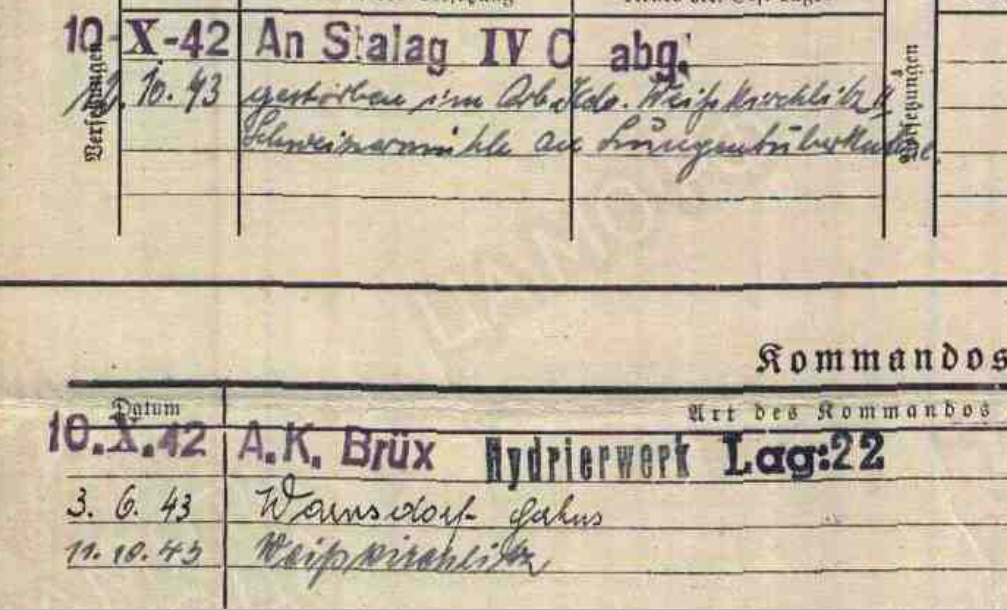 Versetzungen
10-X-42 An Stalag IV C abg.
10.43 gestorben im Arb.Kdo. Weißkirchlitz
Schweizermühle an Lungentuberkulose
Versetzungen
Kommandos
Datum Art des Kommandos
10.X.42 A.K. Brüx Hydrierwerk Lag:22
3. 6. 43 Warnsdorf
11. 10. 43 Weißkirchlitz